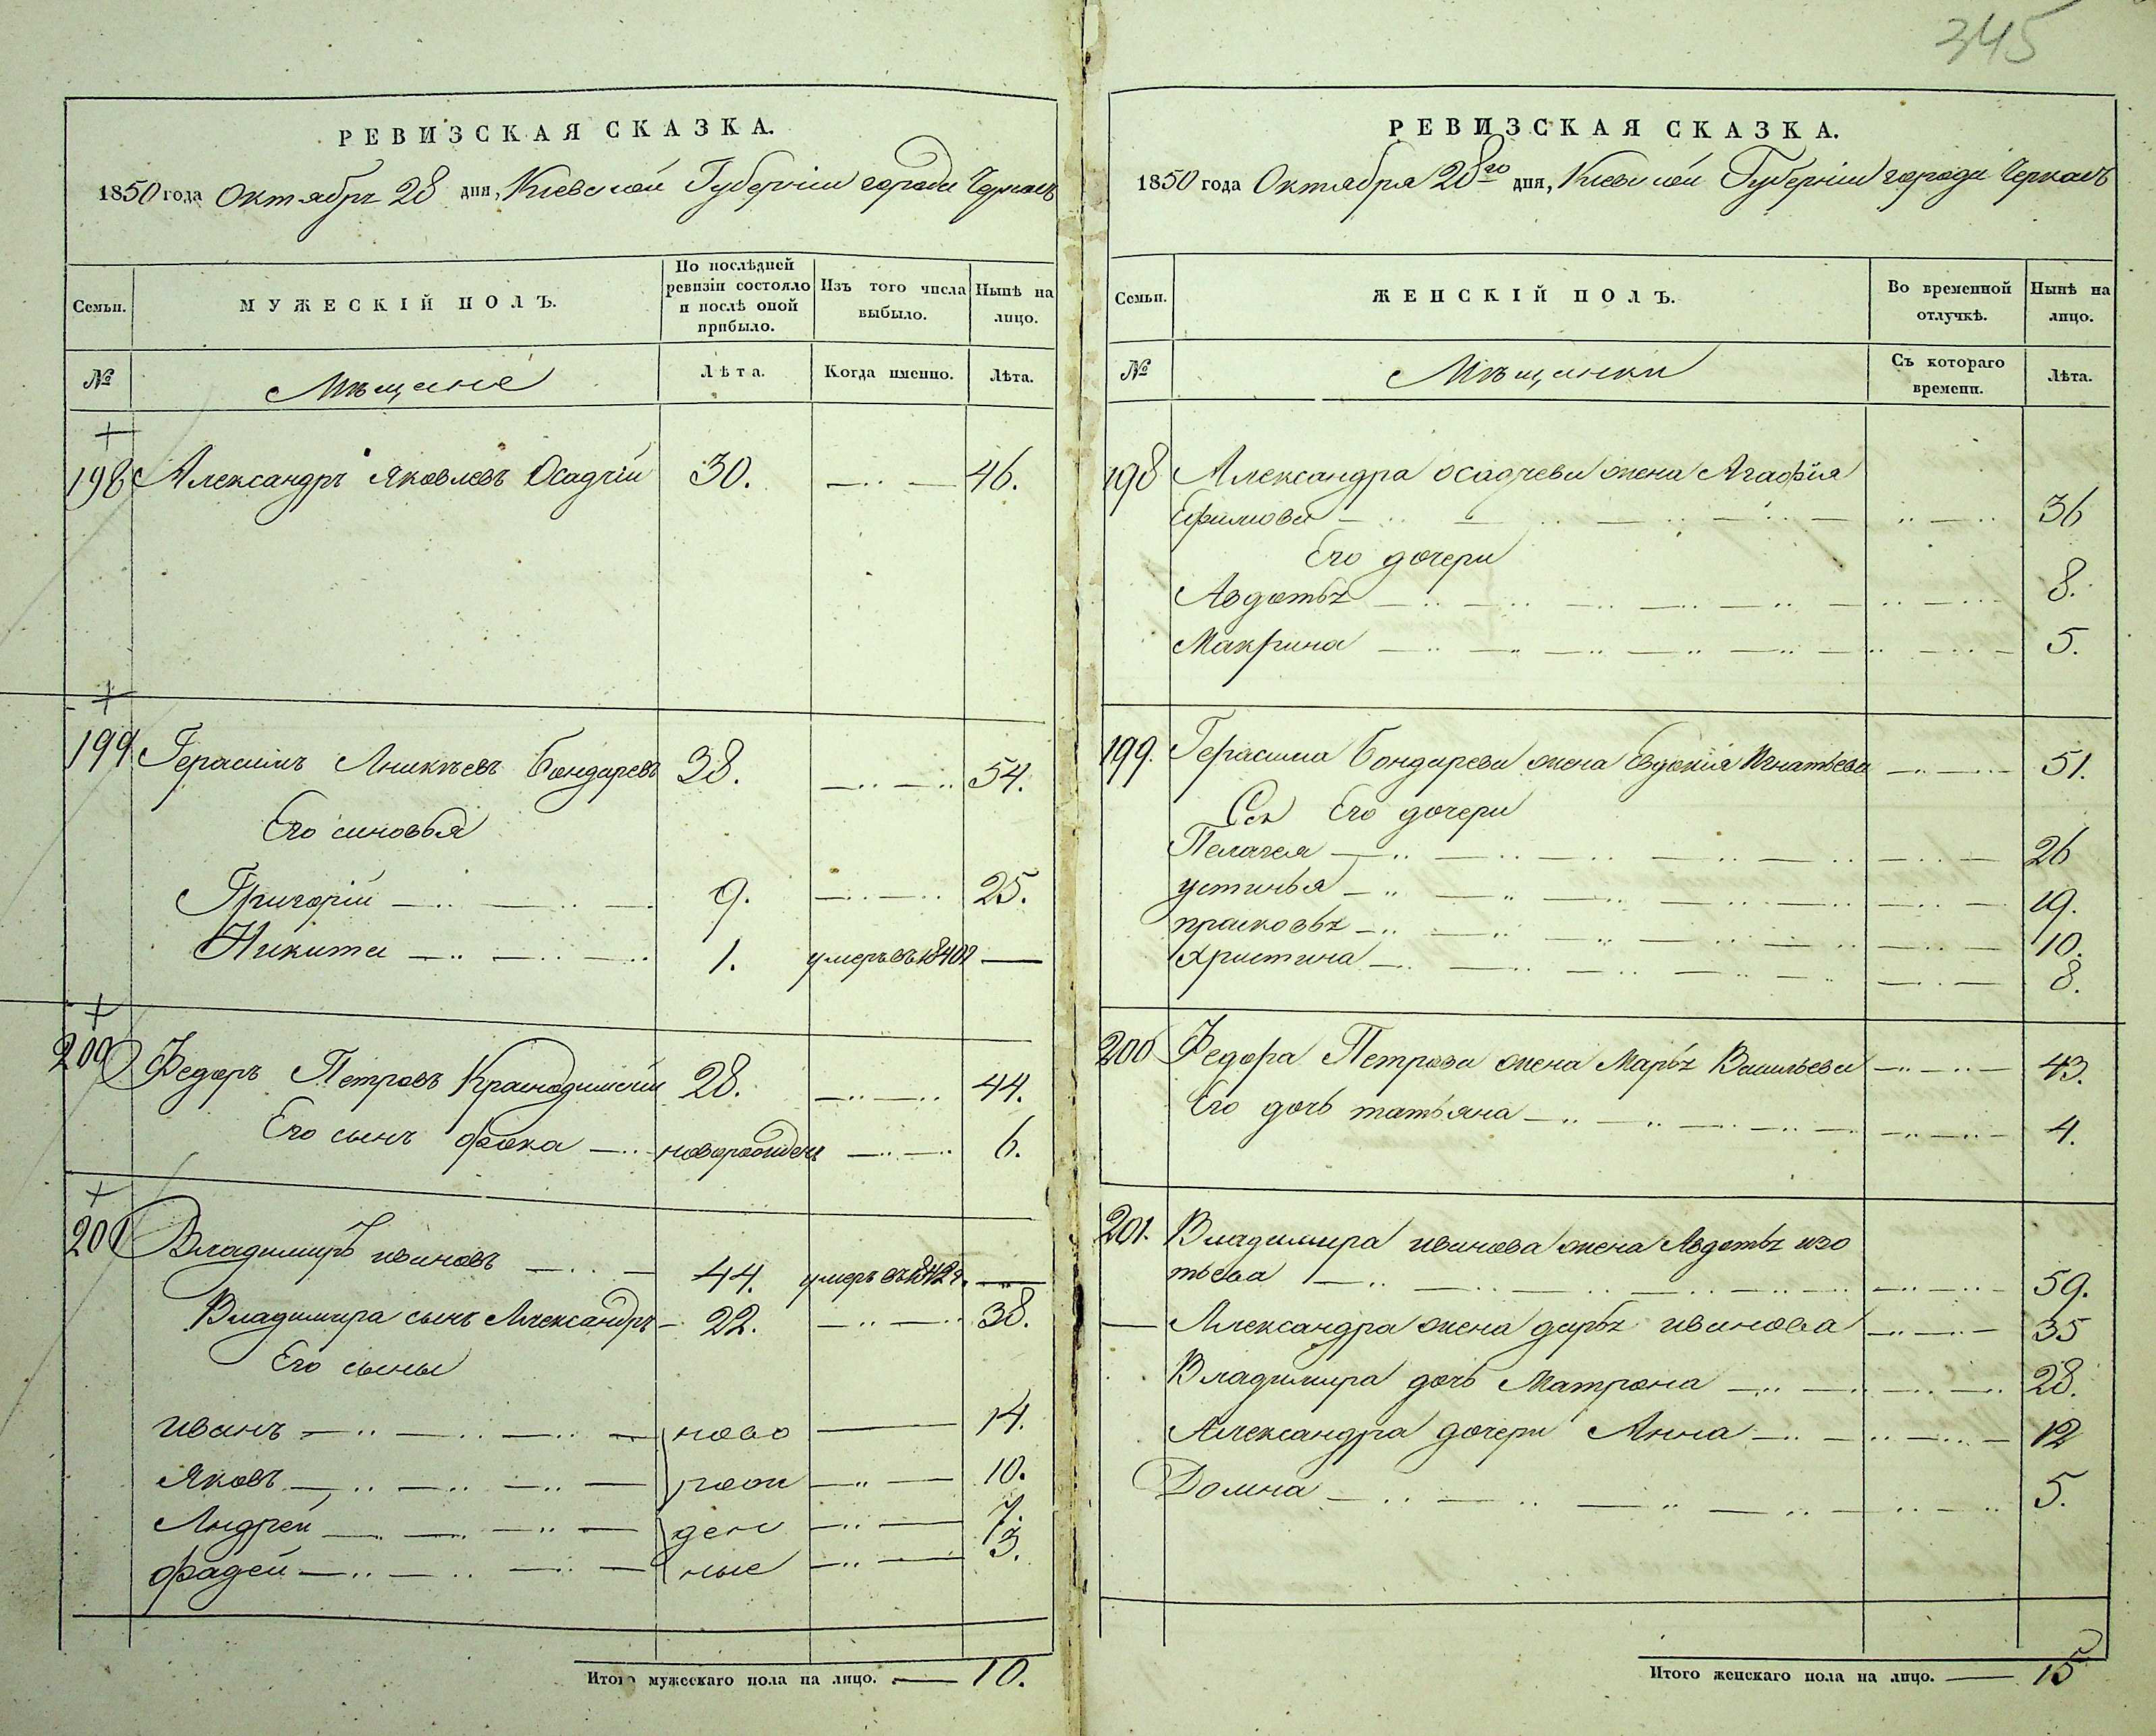 345
РЕВИЗСКАЯ СКАЗКА.
1850 года Октябрь 28 дня, Киевской Губернии города Черкасъ
Семьи.
МУЖЕСКІЙ ПОЛЪ.
По послѣдней ревизіи состояло и послѣ оной прибыло.
Изъ того числа выбыло.
Нынѣ на лицо.
№
Мѣщане
Лѣта.
Когда именно.
Лѣта.
198 Александръ Яковлевъ Осадчій 30. 46.
199 Герасимъ Аникѣевъ Бондаревъ 38. 54.
Его синовья
Григорій 9. 25.
Никита 1. умеръ въ 1840 —
200 Федоръ Петровъ 28. 44.
Его сынъ Фока новорожденъ 6.
201 Владимиръ Ивановъ 44. умеръ въ 1842 г. —
Владимира сынъ Александръ 22. 38.
Его сыны
иванъ ново 14.
Яковъ рож 10.
Андрей ден 7.
Фадей ные 3.
Итого мужескаго пола на лицо. — 10.
РЕВИЗСКАЯ СКАЗКА.
1850 года Октября 28го дня, Киевской Губернии города Черкасъ
Семьи.
ЖЕНСКІЙ ПОЛЪ.
Во временной отлучкѣ.
Нынѣ на лицо.
№
Мѣщанки
Съ котораго времени.
Лѣта.
198 Александра осадчева жена Агафія
Ефимова 36
Его дочери
Авдотья 8.
Макрина 5.
199. Герасима Бондарева жена Евдокія Игнатьева 51.
Его дочери
Пелагея 26
устинья 19.
прасковья 10.
Христина 8.
200 Федора Петрова жена Марья Васильева 43.
Его дочь татьяна 4.
201. Владимира иванова жена Авдотья изо
тьева 59.
Александра жена дарья иванова 35
Владимира дочь Матрона 28.
Александра дочери Анна 12
Домна 5.
Итого женскаго пола на лицо. — 15